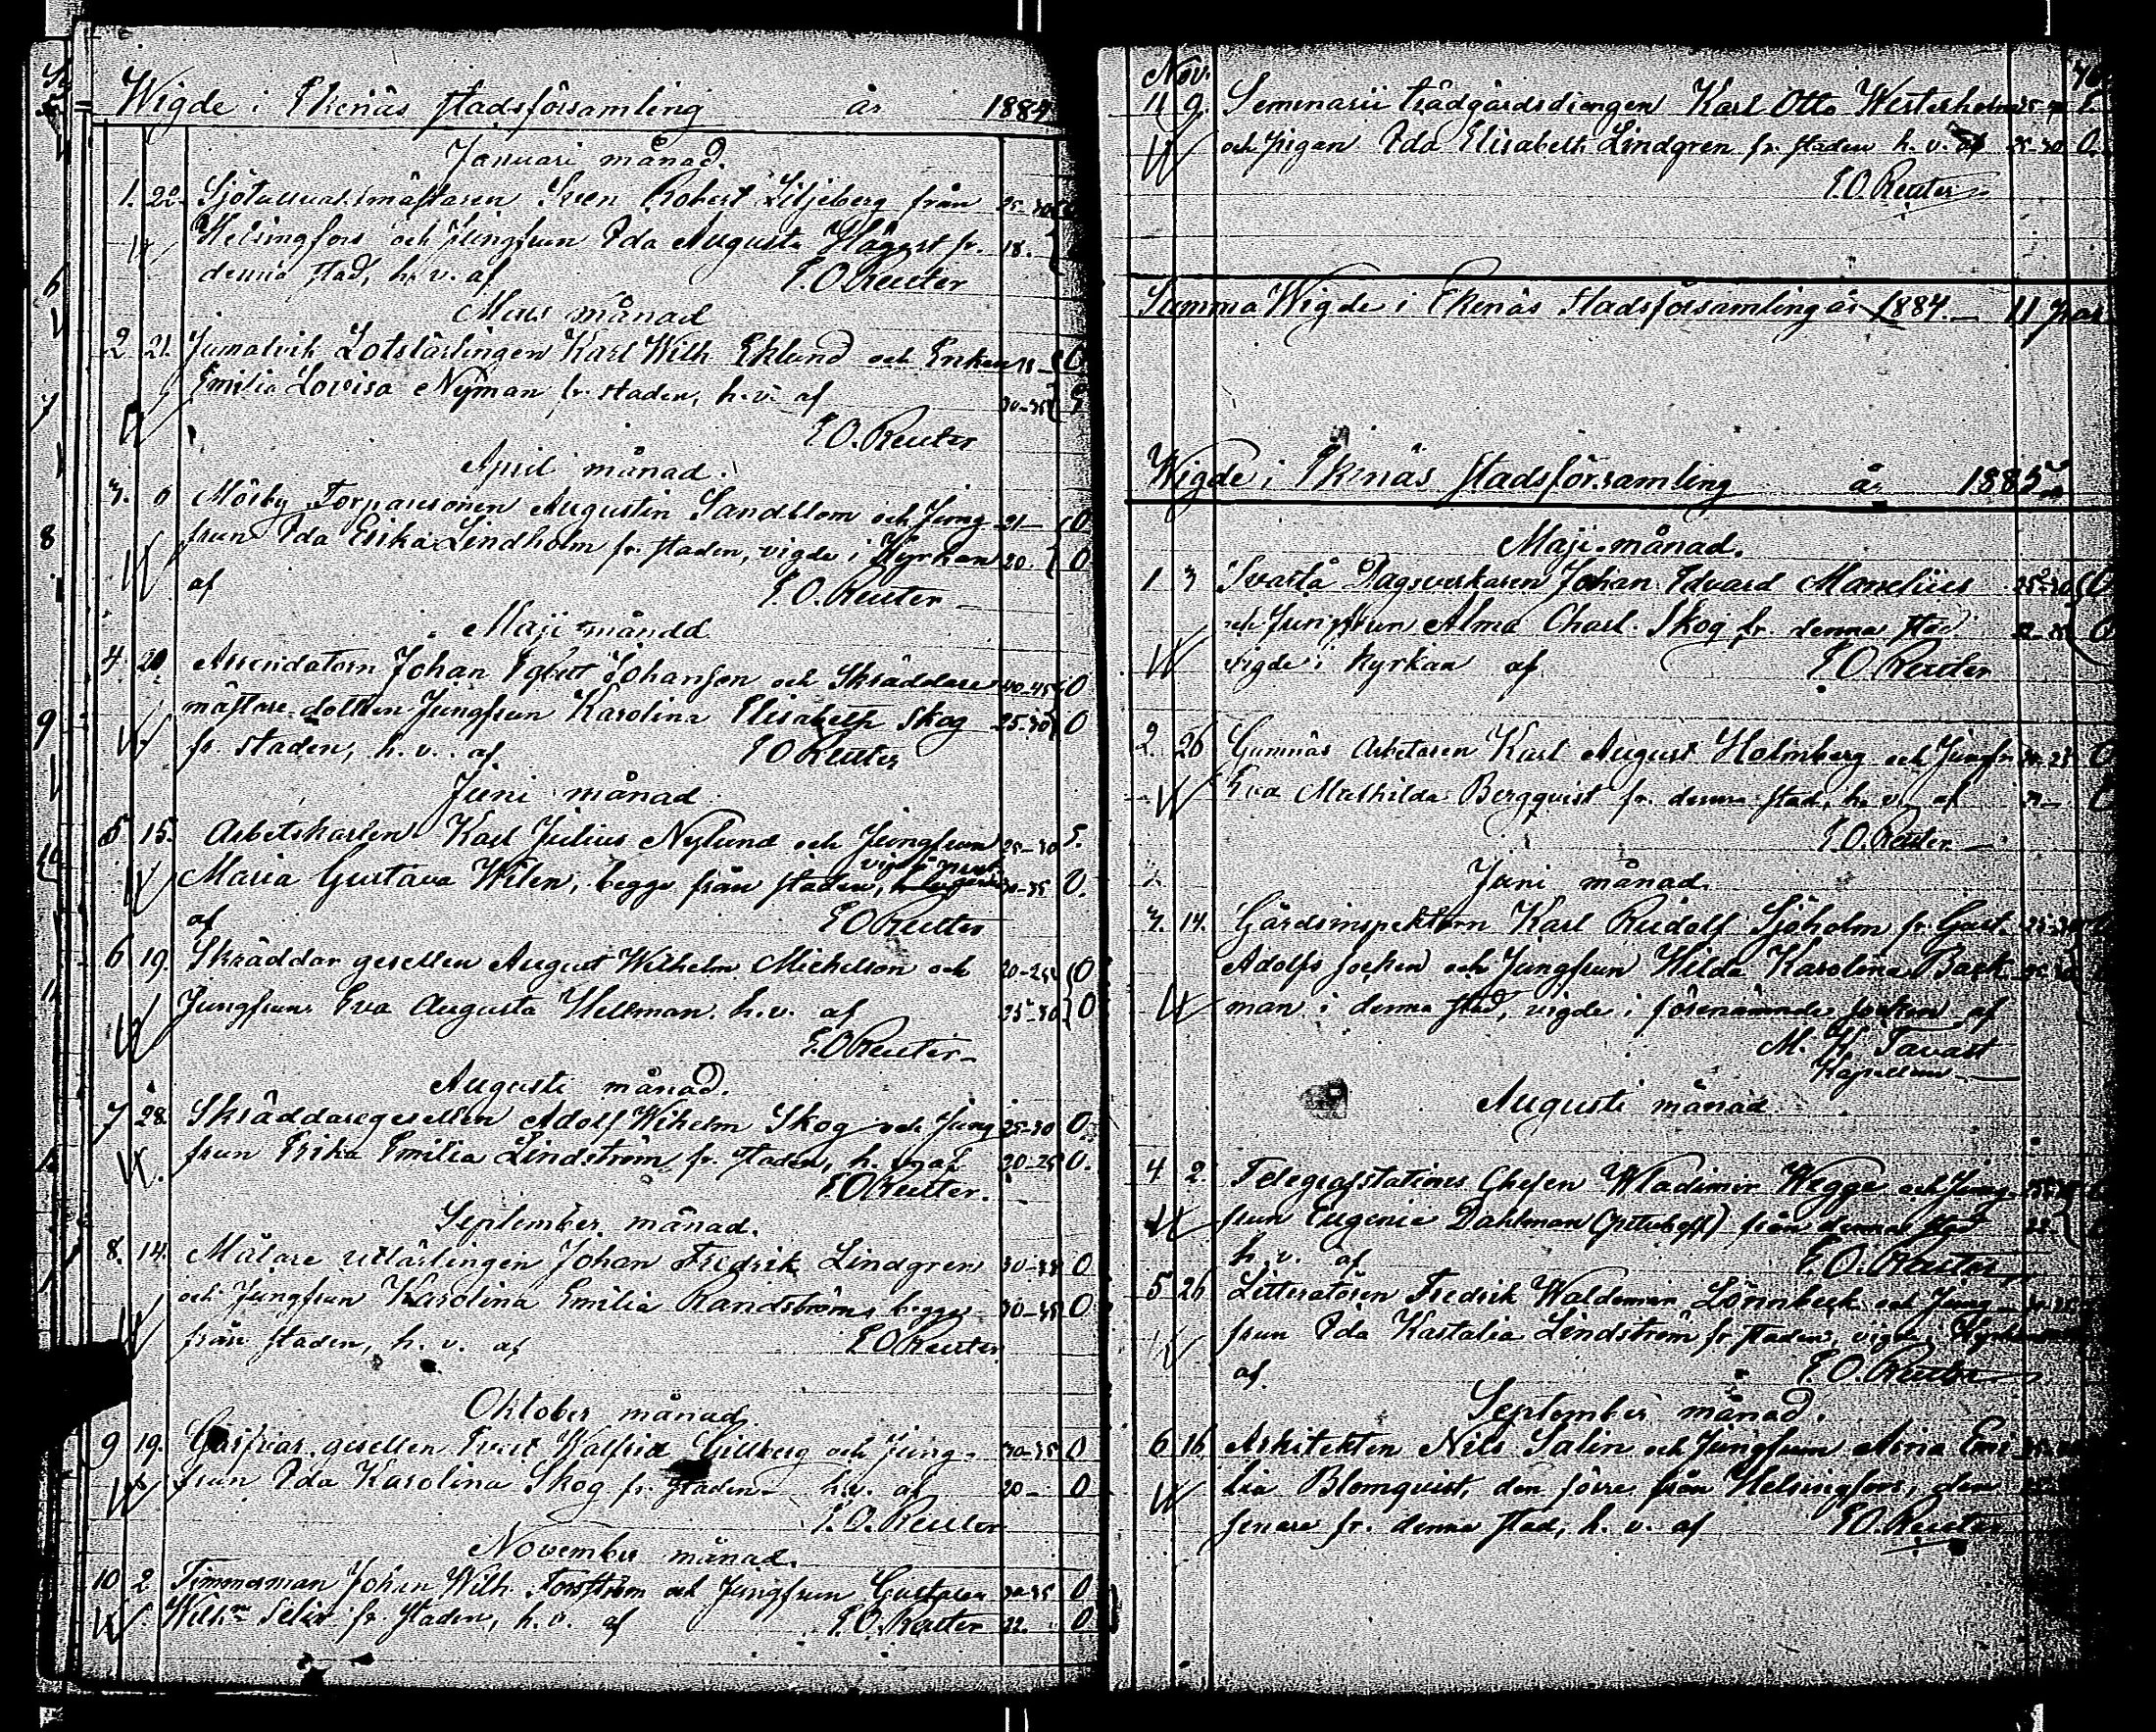 Wigde i Ekenäs stadsförsamling år 1884
Januari månad.
1. 22. Sven Robert Liljeberg från 25-30
Helsingfors och Jungfrun Ida Augusta fr. 18.
denna stad, h. v. af E. O. Reuter
Mars månad
2 21. Lotslärlingen Karl Wilh Eklund och Enkan
Emilia Lovisa Nyman fr. staden, h. v. af 30-35
E O. Reuter
April månad.
3. 6 Mörby Torparesonen Augustin Sandblom och Jung 21- 0
frun Ida Erika Lindholm fr. staden, vigde i Kyrkan 20. 0
af E. O. Reuter
Maji månad
4. 20 Arrendatorn Johan Johanson och Skräddare 40-45 0
mästare dottren Jungfrun Karolina Elisabeth Skog 25-30 0
fr. staden, h. v. af E O Reuter
Juni månad
5 15. Arbetskarlen Karl Julius Nylund och Jungfrun 25-30
Maria Gustava Wilen, begge från staden, 30-35 0.
af E O Reuter
6 19. Skräddar gesellen August Wilhelm Michelson och 20-25 0
Jungfrun Eva Augusta Hellman. h. v. af 25-30 0
E. O Reuter
Augusti månad.
7 28. Skräddaregesellen Adolf Wilhelm Skog och Jung 25-30 0.
frun Erika Emilia Lindström fr. staden, h. v. af 20-25 0.
E. O Reuter.
September månad.
8. 14. Målare utlärlingen Johan Fredrik Lindgren 30-35 0
och Jungfrun Karolina Emilia Randström, begge 30-35 0
från staden, h. v. af E O Reuter
Oktober månad.
9 19. gesellen Walfrid Gillberg och Jung- 30-35 0
frun Ida Karolina Skog fr. staden h. v. af 20- 0
E. O. Reuter
November månad.
10 2 Timmerman Johan Wilh. Forsström och Jungfrun Gustava 30-35 0
fr. staden, h. v. af E. O. Reuter 22. 0
Nov.
11 9. Seminarii trädgårdsdrengen Karl Otto Westerholm
och Pigan Ida Elisabeth Lindgren fr. staden h. v. af 25-30 0.
E. O. Reuter
Summa Wigde i Ekenäs Stadsförsamling år 1884 11 par
Wigde i Ekenäs stadsförsamling år 1885
Maji månad.
1 3 Svartå Dagsverkaren Johan Edvard 25-30
och Jungfrun Alma Charl. Skog fr. denna stad
vigde i kyrkan af E O Reuter
2. 26 Gumnäs Arbetaren Karl August Holmberg och Jungfr
Eva Mathilda Bergqvist fr. denna stad, h. v. af
E. O. Reuter
Juni månad.
3. 14. Gårdsinspektorn Karl Rudolf Sjöholm fr. Gust. 25-30
Adolfs socken och Jungfrun Hilda Karolina Back-
man i denna stad, vigde i förenämnde socken af
M. W. Tavast
Kapellan
Augusti månad
4 2. Telegrafstations Chefen Wladimir Wegge och Jung-
frun Eugenie Dahlman från denna stad
h. v. af E. O. Reuter
5 26 Litteratören Fredrik Waldemar Lönnbeck och Jung-
frun Ida Kastalia Lindström fr. staden, vigde i Kyrkan
af E. O. Reuter
September månad.
6 16 Arkitekten Nils Salin och Jungfrun Emi
lia Blomqvist, den förre från Helsingfors, den
senare fr. denna stad, h. v. af E O. Reuter